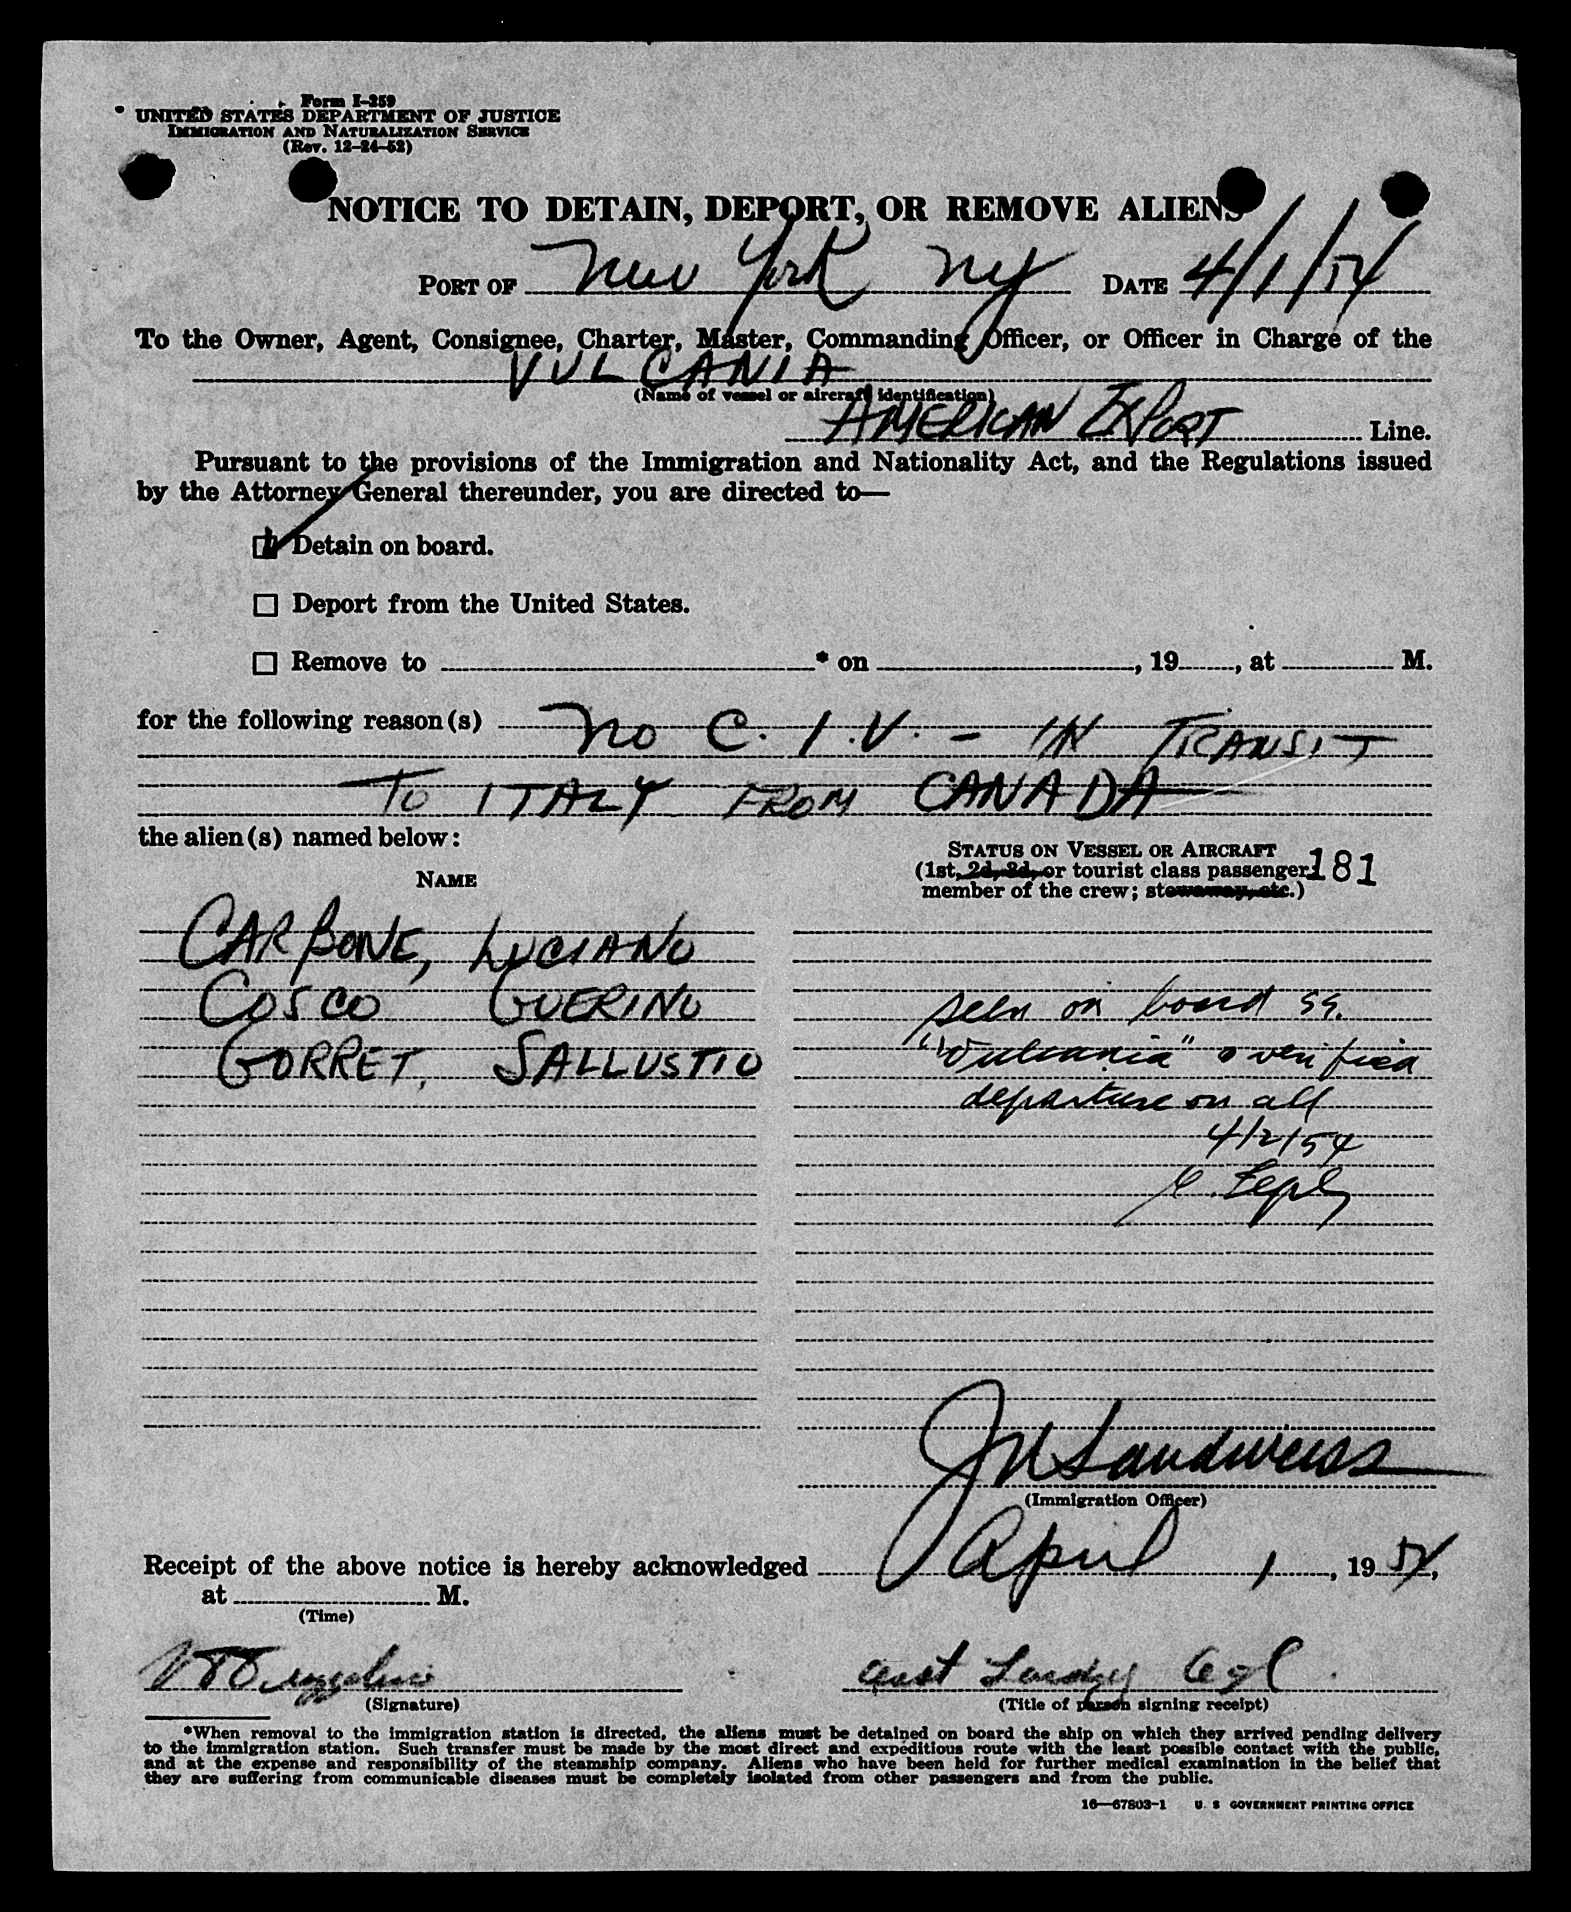 Form I-259
UNITED STATES DEPARTMENT OF JUSTICE
IMMIGRATION AND NATURALIZATION SERVICE
(Rev. 12-24-52)
NOTICE TO DETAIN, DEPORT, OR REMOVE ALIENS
PORT OF New York NY DATE 4/1/54
To the Owner, Agent, Consignee, Charter, Master, Commanding Officer, or Officer in Charge of the
VULCANIA
(Name of vessel or aircraft identification)
AMERICAN EXPORT Line.
Pursuant to the provisions of the Immigration and Nationality Act, and the Regulations issued
by the Attorney General thereunder, you are directed to—
Detain on board.
Deport from the United States.
Remove to * on , 19 , at M.
for the following reason(s) No C.I.V. - IN TRANSIT
TO ITALY FROM CANADA
the alien(s) named below:
STATUS ON VESSEL OR AIRCRAFT
(1st, 2d, 3d, or tourist class passenger 181
NAME
member of the crew; stowaway, etc.)
CARBONE, LUCIANO
COSCO GUERINO
GORRET, SALLUSTIO
seen on board SS.
"Vulcania" & verified
departure on all
4/2/54
JN Landweiss
(Immigration Officer)
Receipt of the above notice is hereby acknowledged April 1, 19 54,
at M.
(Time)
(Signature)
(Title of person signing receipt)
*When removal to the immigration station is directed, the aliens must be detained on board the ship on which they arrived pending delivery
to the immigration station. Such transfer must be made by the most direct and expeditious route with the least possible contact with the public,
and at the expense and responsibility of the steamship company. Aliens who have been held for further medical examination in the belief that
they are suffering from communicable diseases must be completely isolated from other passengers and from the public.
16—67803-1 U. S GOVERNMENT PRINTING OFFICE